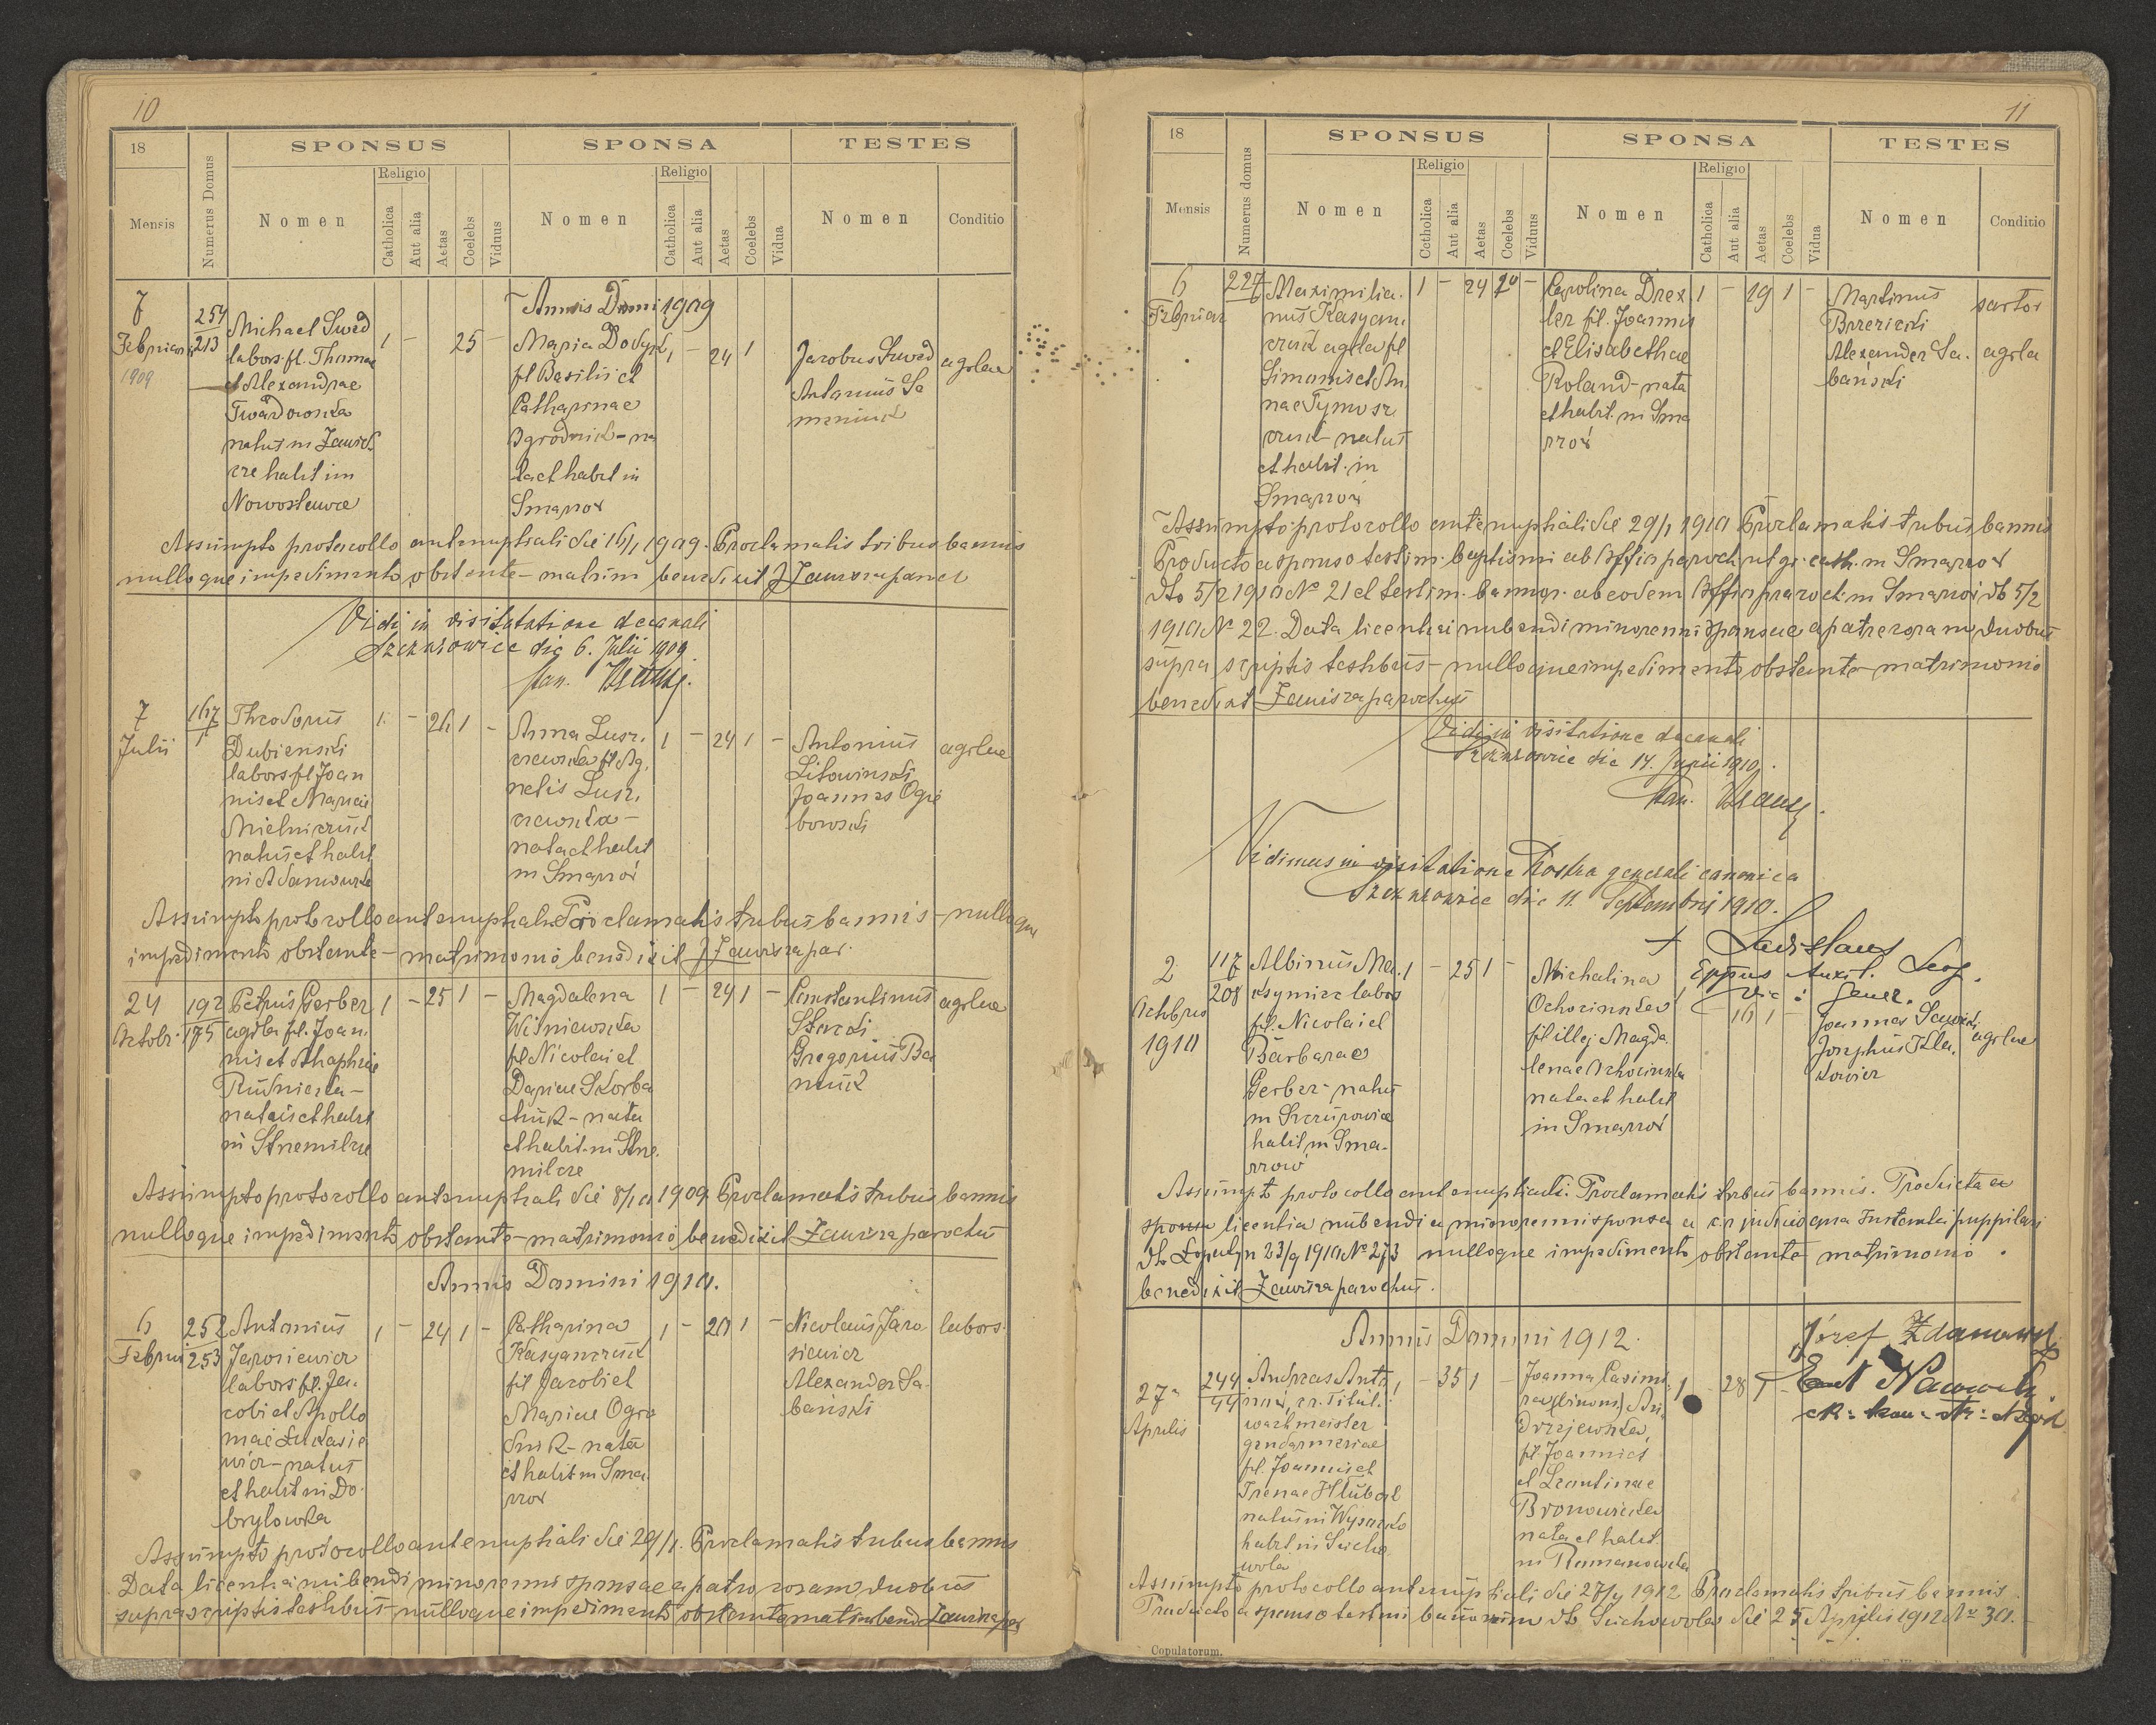 10
18
SPONSUS
SPONSA
TESTES
Mensis
Numerus Domus
Nomen
Religio
Catholica
Aut alia
Aetas
Coelebs
Viduus
Nomen
Religio
Catholica
Aut alia
Aetas
Coelebs
Vidua
Nomen
Conditio
Annis Domini 1909
7
Februar
1909
254
213
Michael Swed
labors. fl. Thomae
et Alexandrae
Twardowska
natus in
habit in
Nowostawce
1 - 25 -
Maria
fl Basilii et
Catharinae
Ogrodnik - na
ta et habit in
Smarzow
1 - 24 1
Jacobus Swed
Antonius Sa
agolae
Assumpto protocollo antenuptiali die 16/1 1909. Proclamatis tribus bannis
nulloque impedimento obstante - matrim benedixit J Zawisza paroch
Vidi in visitatione decanali
Szczurowice die 6. Julii 1909
7
Julii
167
1
Theodorus
Dubienski
labors fl Joan
nis et Mariae
Mielniczuk
natus et habit
in Adamowka
1 - 26 1 -
Anna Lusz.
czewska fl Ag.
netis Lusz.
czewska -
nata et habit
in Smarzow
1 - 24 1 -
Antonius
Litowinski
Joannes Ogie
bowski
agolae
Assumpto protocollo antenuptiali Proclamatis tribus bannis - nulloque
impedimento obstante - matrimonio benedixit J Zawisza par.
24
Octobr.
192
175
Petrus Gerber
agola fl. Joan.
nis et
Rudnicka -
natus et habit
in Strzemilcze
1 - 25 1 -
Magdalena
Wisniewska
fl Nicolai et
Dariae Skorba
tiuk - nata
et habit in Strze.
milcze
1 - 24 1 -
Constantinus
Gregorius Ba
agolae
Assumpto protocollo antenuptiali die 8/10 1909. Proclamatis tribus bannis
nulloque impedimento obstante - matrimonio benedixit Zawisza parochus
Annis Domini 1910.
6
Februa
252
253
Antonius
Jarosiewicz
labors fl. Ja.
cobi et Apollo
niae Lukasie
wicz - natus
et habit in Do.
brylowka
1 - 24 1 -
Catharina
Kasyanczuk
fil Jacobi et
Mariae Ogro
dnik - nata
et habit in Smar.
zow
1 - 20 1 -
Nicolaus Jaro
siewicz
Alexander Sa.
banski
labors.
Assumpto protocollo antenuptiali die 29/1. Proclamatis tribus bannis
Data licentia nubendi minorenni sponsae a patre coram duobus
suprascriptis testibus - nulloque impedimento obstante matr bened Zawisza par
11
18
SPONSUS
SPONSA
TESTES
Mensis
Numerus domus
Nomen
Religio
Catholica
Aut alia
Aetas
Coelebs
Viduus
Nomen
Religio
Catholica
Aut alia
Aetas
Coelebs
Vidua
Nomen
Conditio
6
Februar
Maximilia.
nus Kasyan.
czuk agola fl
Simonis et An.
nae Tymosz.
czuk natus
et habit. in
Smarzow
1 - 24
Carolina Drex.
ler fil. Joannis
et Elisabethae
Roland - nata
et habit. in Smar
zow
1 - 19 1 -
Martinus
Brzezicki
Alexander Sa.
banski
sartor
agola
Assumpto protocollo antenuptiali die 29/1 1910 Proclamatis tribus bannis
Producto a sponso testim. baptismi ab Officio paroch rit gr. cath. in Smarzow
dto 5/2 1910 No 21 et testim. bannor. ab eodem Officio paroch in Smarzow dto 5/2
1910 No 22. Data licentia nubendi minorenni sponsae a patre coram duobus
supra scriptis testibus - nulloque impedimento obstante - matrimonio
benedixit Zawisza parochus
Vidi in visitatione decanali
Szczurowice die 14. Junii 1910.
Vidimus in visitatione Nostra generali canonica
Szczurowice die 11 Septembris 1910.
+ Ladislaus
Eppus Auxil. Leop.
Vic. gener.
2
Octobris
1910
117
208
Albinus Ka.
zymierz labors
fil. Nicolai et
Barbarae
Gerber - natus
in Szczurowice
habit in Smar.
zow
1 - 25 1 -
Michalina
Ochocinska
fil illeg Magda.
lenae Ochocinska
nata et habit
in Smarzow
1 - 16 1 -
Joannes Sawicki
Josephus Kla.
kowicz
agolae
Assumpto protocollo antenuptiali. Proclamatis tribus bannis. Producta a
sponsa licentia nubendi a minorenni sponsa a c.r. judicio qua Instantia puppilari
dto Lopatyn 23/9 1910 No 273 nulloque impedimento obstante matrimonio
benedixit Zawisza parochus.
Annis Domini 1912.
27
Aprilis
244
44
Andreas Anto
nius, cr. titul.
wachmeister
gendarmeriae
fl. Joannis et
Irenae
natus in Wysocko
habit in Sucho
wola
1 - 35 1 -
Joanna Casimi
ra (binom.) An.
drzejewska,
fl. Joannis
et Leontinae
Bronowicka
nata et habit.
in Romanowka
1 - 28 1 -
Józef Zdanowski
Assumpto protocollo antenuptiali die 27/4 1912 Proclamatis tribus bannis
Producto a sponso testimi bannorum dto Suchowola die 25 Aprilis 1912 No 30.
Copulatorum.